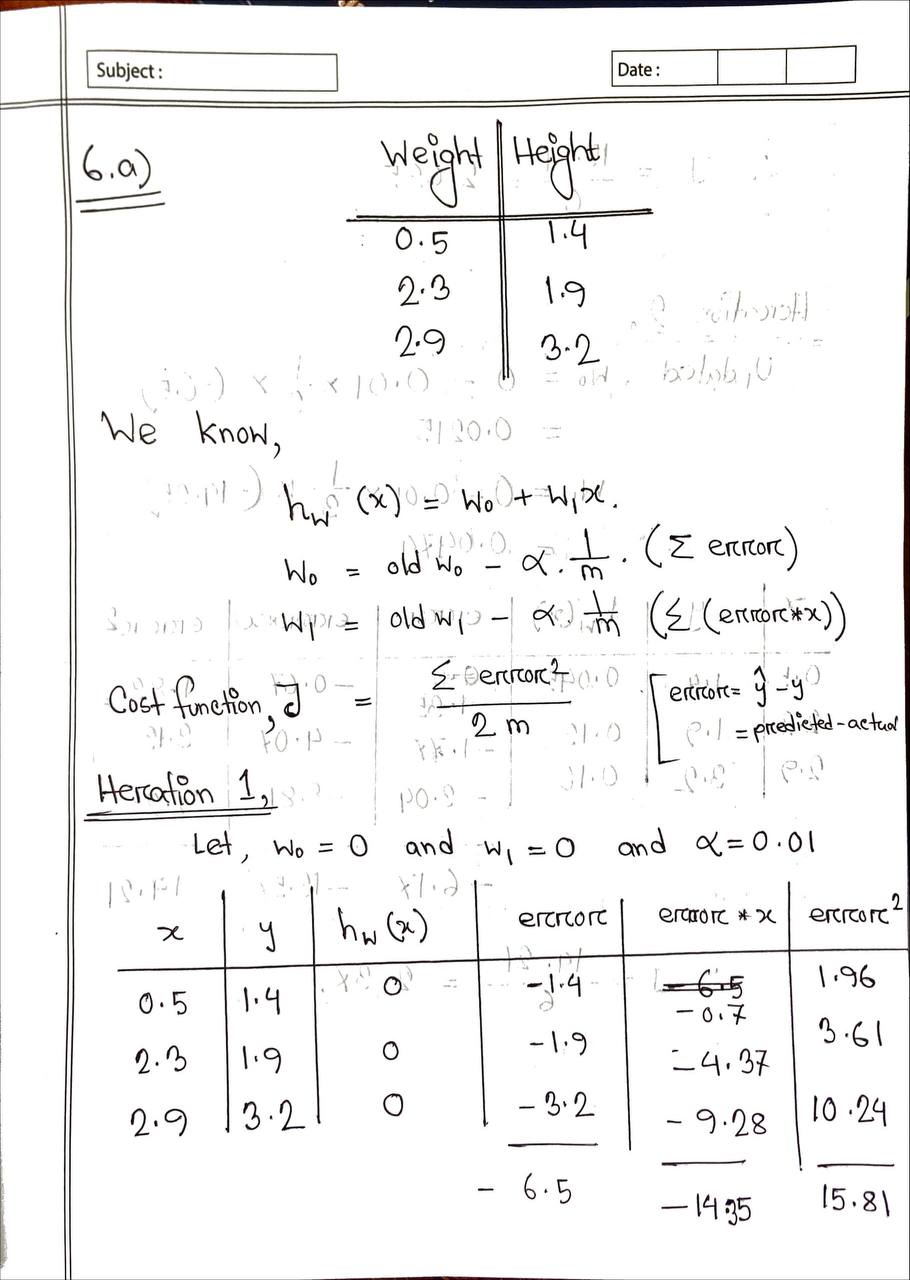 Subject :
Date :
6.a)
Weight | Height
0.5 | 1.4
2.3 | 1.9
2.9 | 3.2
We know,
h_w (x) = w₀ + w₁x.
w₀ = old w₀ - α. 1/m . (Σ error)
w₁ = old w₁ - α 1/m (Σ (error*x))
Cost function, J = Σ error² / 2 m
[error = ŷ - y
= predicted - actual
Iteration 1,
Let, w₀ = 0 and w₁ = 0 and α = 0.01
x | y | h_w (x) | error | error * x | error²
0.5 | 1.4 | 0 | -1.4 | -0.7 | 1.96
2.3 | 1.9 | 0 | -1.9 | -4.37 | 3.61
2.9 | 3.2 | 0 | -3.2 | -9.28 | 10.24
- 6.5 | -14.35 | 15.81